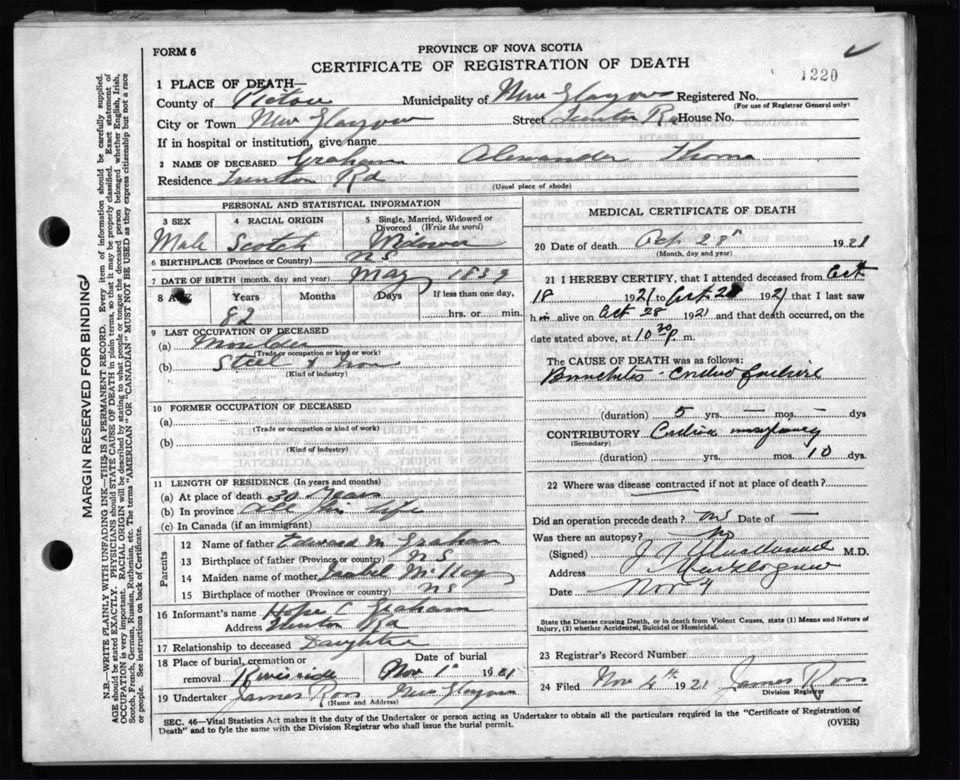 FORM 6
PROVINCE OF NOVA SCOTIA
CERTIFICATE OF REGISTRATION OF DEATH
1220
1 PLACE OF DEATH—
County of Pictou Municipality of New Glasgow Registered No.
(For use of Registrar General only)
City or Town New Glasgow Street Trenton Rd House No.
If in hospital or institution, give name
2 NAME OF DECEASED Graham Alexander Thoma
Residence Trenton Rd
(Usual place of abode)
PERSONAL AND STATISTICAL INFORMATION
3 SEX 4 RACIAL ORIGIN 5 Single, Married, Widowed or Divorced (Write the word)
Male Scotch Widower
6 BIRTHPLACE (Province or Country) NS
7 DATE OF BIRTH (month, day and year) May 1839
8 AGE Years Months Days If less than one day,
82 hrs. or min.
9 LAST OCCUPATION OF DECEASED
(a) Moulder
(Trade or occupation or kind or work)
(b) Steel & Iron
(Kind of industry)
10 FORMER OCCUPATION OF DECEASED
(a)
(Trade or occupation or kind of work)
(b)
(Kind of industry)
11 LENGTH OF RESIDENCE (In years and months)
(a) At place of death 30 Years
(b) In province all his life
(c) In Canada (if an immigrant)
Parents
12 Name of father Edward M Graham
13 Birthplace of father (Province or country) N S
14 Maiden name of mother Isabel McKay
15 Birthplace of mother (Province or country) NS
16 Informant's name Hope C Graham
Address Trenton Rd
17 Relationship to deceased Daughter
18 Place of burial, cremation or removal Riverside Date of burial Nov 1st 1921
19 Undertaker James Ross New Glasgow
(Name and Address)
MEDICAL CERTIFICATE OF DEATH
20 Date of death Oct 28th 1921
(Month, day and year)
21 I HEREBY CERTIFY, that I attended deceased from Oct
18 1921 to Oct. 28 1921 that I last saw
him alive on Oct 28 1921 and that death occurred, on
date stated above, at 10 30 p. m.
The CAUSE OF DEATH was as follows:
Bronchitis - Cardiac failure
(duration) 5 yrs. — mos. — dys
CONTRIBUTORY Cardiac
(Secondary)
(duration) yrs. mos. 10 dys.
22 Where was disease contracted if not at place of death?
Did an operation precede death? no Date of —
Was there an autopsy? No
(Signed) M.D.
Address New Glasgow
Date Nov 4
State the Disease causing Death, or in death from Violent Causes, state (1) Means and Nature of
Injury, (2) whether Accidental, Suicidal or Homicidal.
23 Registrar's Record Number
24 Filed Nov 4th 1921 James Ross
Division Registrar
SEC. 46—Vital Statistics Act makes it the duty of the Undertaker or person acting as Undertaker to obtain all the particulars required in the "Certificate of Registration of
Death" and to fyle the same with the Division Registrar who shall issue the burial permit. (OVER)
MARGIN RESERVED FOR BINDING
N.B.—WRITE PLAINLY WITH UNFADING INK—THIS IS A PERMANENT RECORD. Every item of information should be carefully supplied.
AGE should be stated EXACTLY. PHYSICIANS should STATE CAUSE OF DEATH in plain terms, so that it may be properly classified. Exact statement of
OCCUPATION is very important. RACIAL ORIGIN will be described by stating to what people or tongue the deceased person belonged whether English, Irish,
Scotch, French, German, Russian, Ruthenian, etc. The terms "AMERICAN" OR "CANADIAN" MUST NOT BE USED as they express citizenship but not a race
or people. See instructions on back of Certificate.